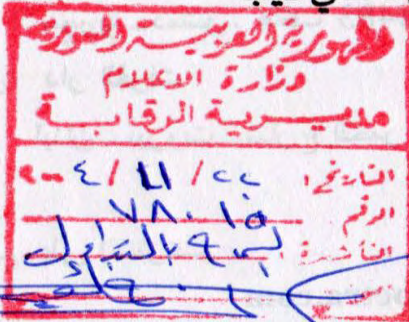 الجمهورية العربية السورية
وزارة الاعلام
مديرية الرقابة
التاريخ: ٢٢/١١/٢٠٠٤
الرقم ٧٨٠١٥
التأشيرة يسمح بالتداول